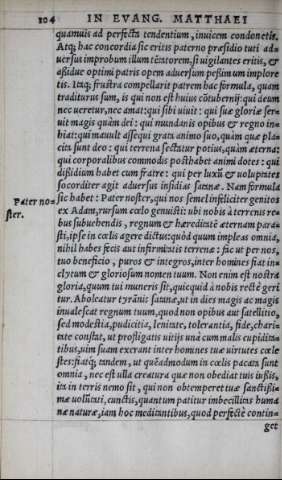 104 IN EVANG. MATTHAEI
quamuis ad perfectā tendentium, inuicem condonetis.
Atq; hac concordia sic eritis paterno præsidio tuti ad-
uersus improbum illum tētatorem, si uigilantes eritis, et
aßidue optimi patris opem aduersum peßimum implore
tis. Itaq; frustra compellarit patrem hac formula, quam
tradituri sum, is qui non est huius cōtubernij: qui deum
nec ueretur, nec amat: qui sibi uiuit: qui suæ gloriæ ser-
uit magis quàm dei: qui mundanis opibus et regno in-
hiat: qui mauult assequi grata animo suo, quàm quæ pla-
cita sunt deo: qui terrena sectatur potius, quàm æterna:
qui corporalibus commodis posthabet animi dotes: qui
dißidium habet cum fratre: qui per luxū & uoluptates
socorditer agit aduersus insidias satanæ. Nam formula
sic habet: Pater noster, qui nos semel infeliciter genitos
Pater no-
ster.
ex Adam, rursum cœlo genuisti: ubi nobis à terrenis re-
bus subuehendis, regnum & hæreditatē æternam para-
sti, ipse in cœlis agere dictus: quòd quum impleas omnia,
nihil habes fecis aut infirmitatis terrenæ: fac ut per nos,
tuo beneficio, puros & integros, inter homines fiat in-
clytum & gloriosum nomen tuum. Non enim est nostra
gloria, quum tui muneris sit, quicquid à nobis rectè geri
tur. Aboleatur tyrānis satanæ, ut in dies magis ac magis
inualescat regnum tuum, quod non opibus aut satellitio,
sed modestia, pudicitia, lenitate, tolerantia, fide, chari-
tate constat, ut profligatis uitijs unà cum malis cupidita-
tibus, uim suam exerant inter homines tuæ uirtutes cœle
stes: fiatq; tandem, ut quēadmodum in cœlis pacata sunt
omnia, nec est ulla creatura quæ non obediat tuis iußis,
ita in terris nemo sit, qui non obtemperet tuæ sanctißi-
mæ uolūtati, cunctis, quantum patitur imbecillitas huma
næ naturæ, iam hoc meditantibus, quod perfectè contin-
get